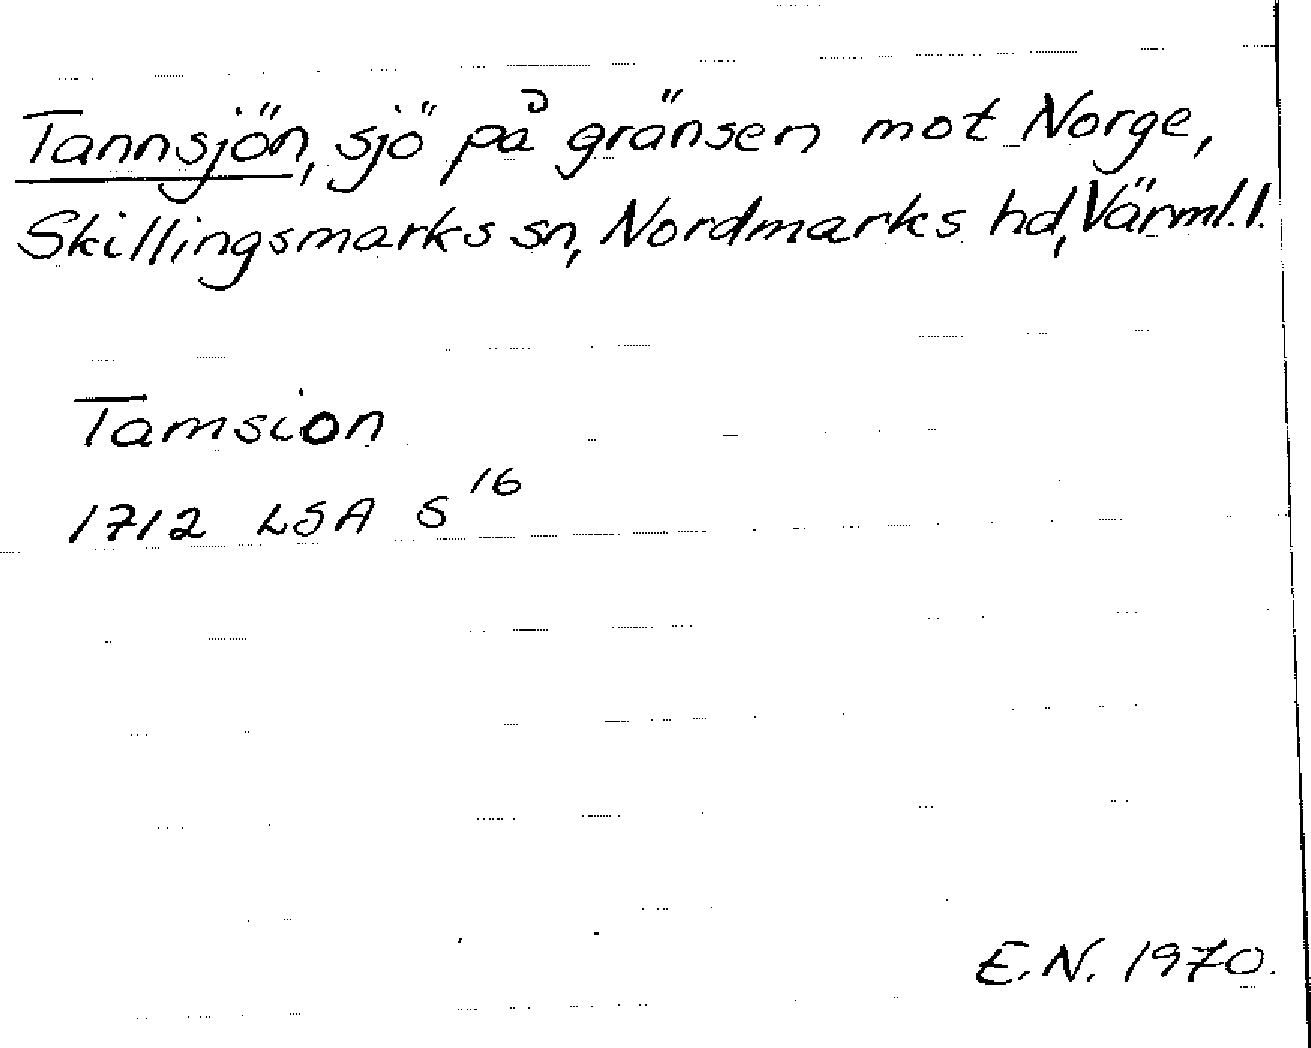 Tannsjön, sjö på gränsen mot Norge,
Skillingsmarks sn, Nordmarks hd, Värml. l.
Tamsion
1712 LSA S 16
E.N. 1970.